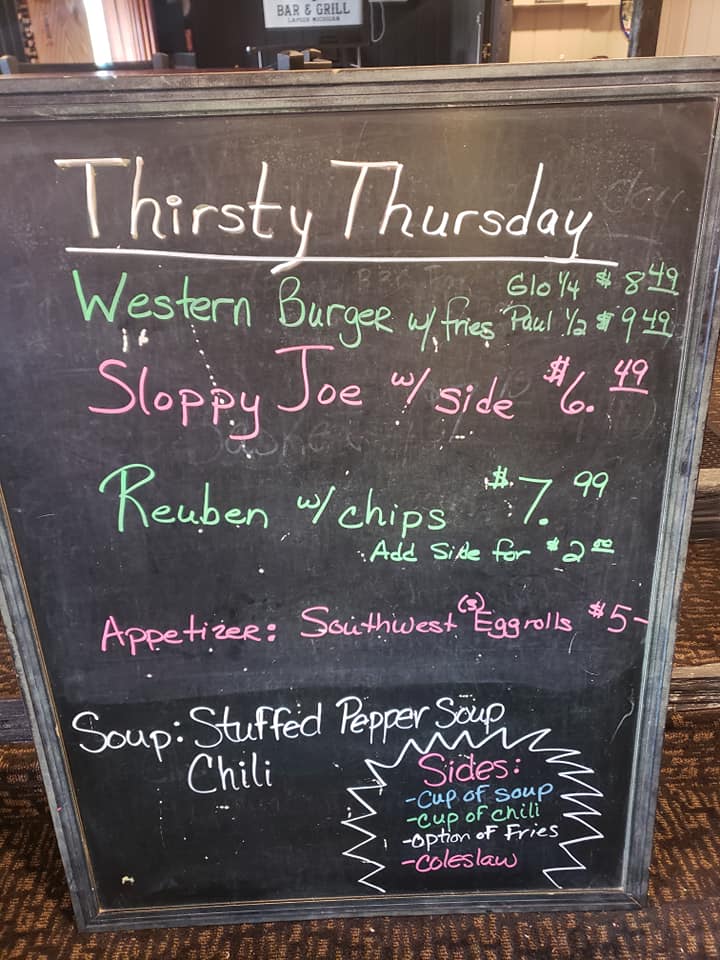 BAR & GRILL
LAPEER MICHIGAN
Thirsty Thursday
Western Burger w/ fries Glo 1/4 $ 8 49
Paul 1/2 $ 9 49
Sloppy Joe w/ side $6. 49
Reuben w/ chips $7. 99
Add Side for $2 00
Appetizer: Southwest (3) Eggrolls $5-
Soup: Stuffed Pepper Soup
Chili
Sides:
-Cup of soup
-cup of chili
-option of Fries
-coleslaw